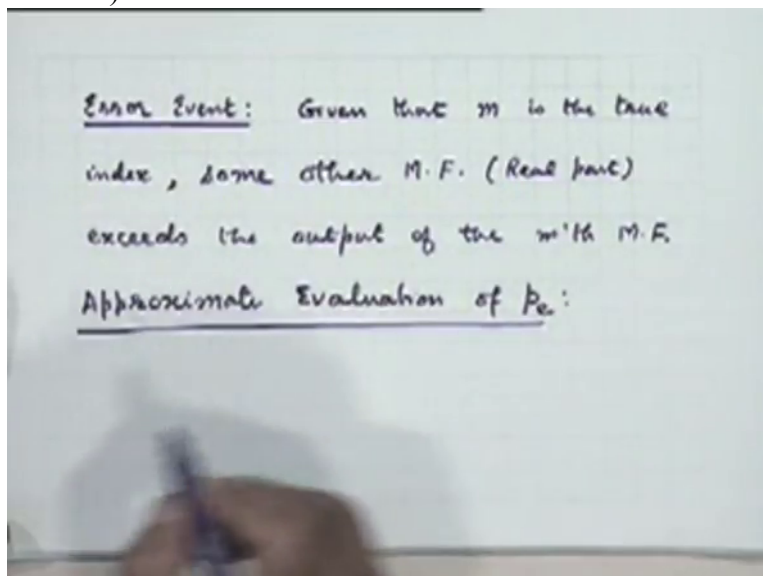 Error Event: Given that m is the true
index, some other M.F. (Real part)
exceeds the output of the m'th M.F.
Approximate Evaluation of Pe: